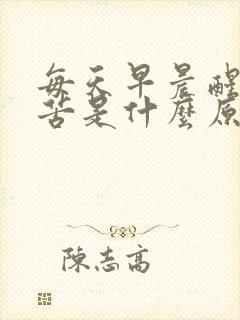 每天早晨醒
苦是什麼原
陳志高